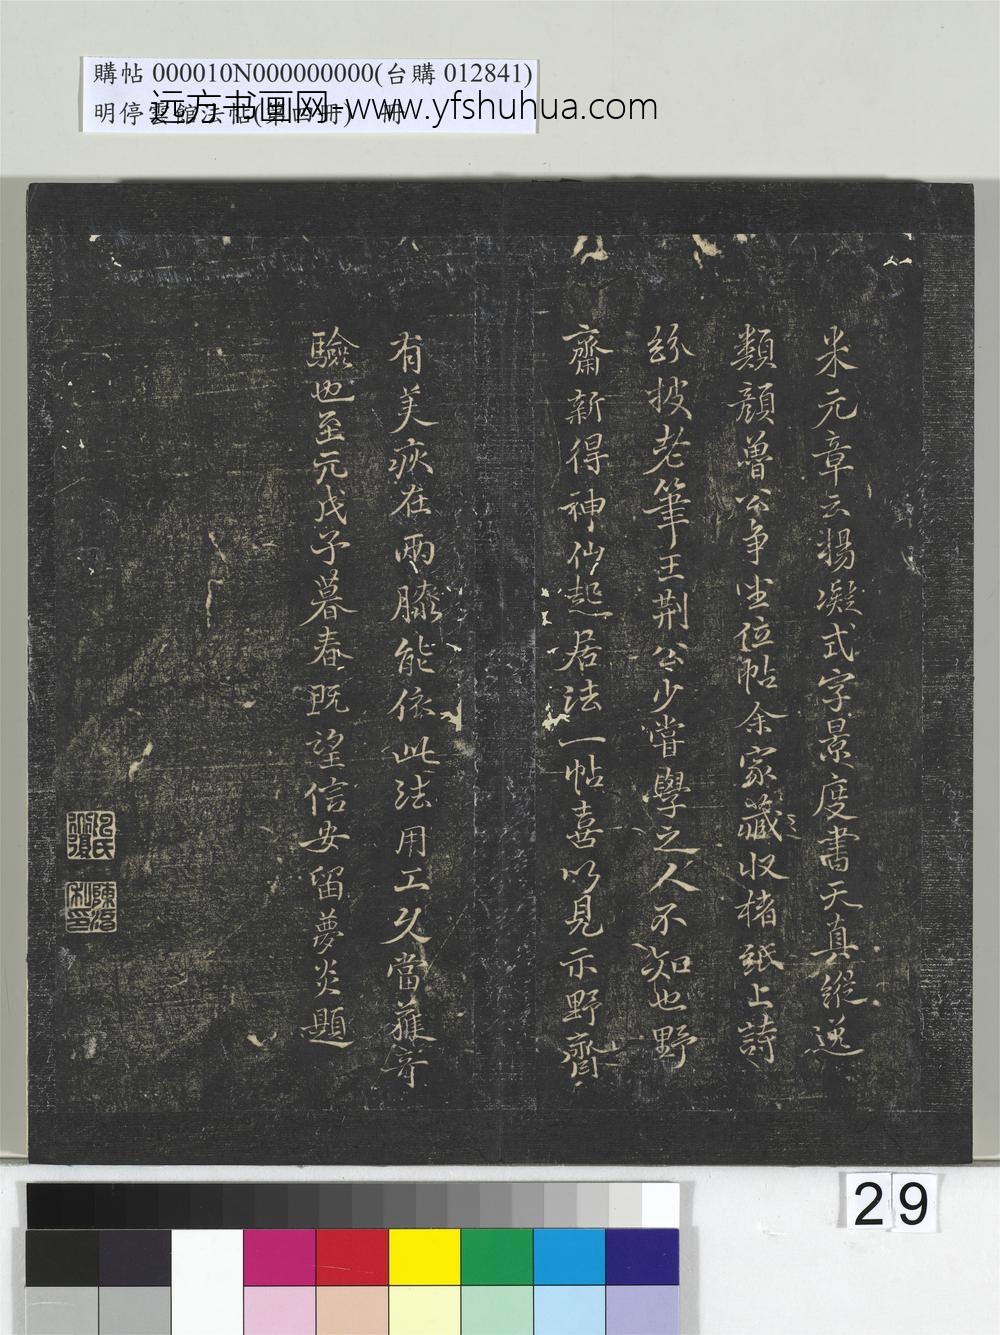 購帖 000010N000000000(台購 012841)
明停雲館法帖(第四冊) 冊
远方书画网-www.yfshuhua.com
米元章云揚凝式字景度書天真縱逸
類顏魯公爭坐位帖余家藏収楮紙上詩
披老筆王荆公少嘗學之人不知也野
齋新得神仙起居法一帖喜以見示野齋
有美疾在兩膝能依此法用工久當獲奇
驗也至元戊子暮春既望信安留夢炎題
29